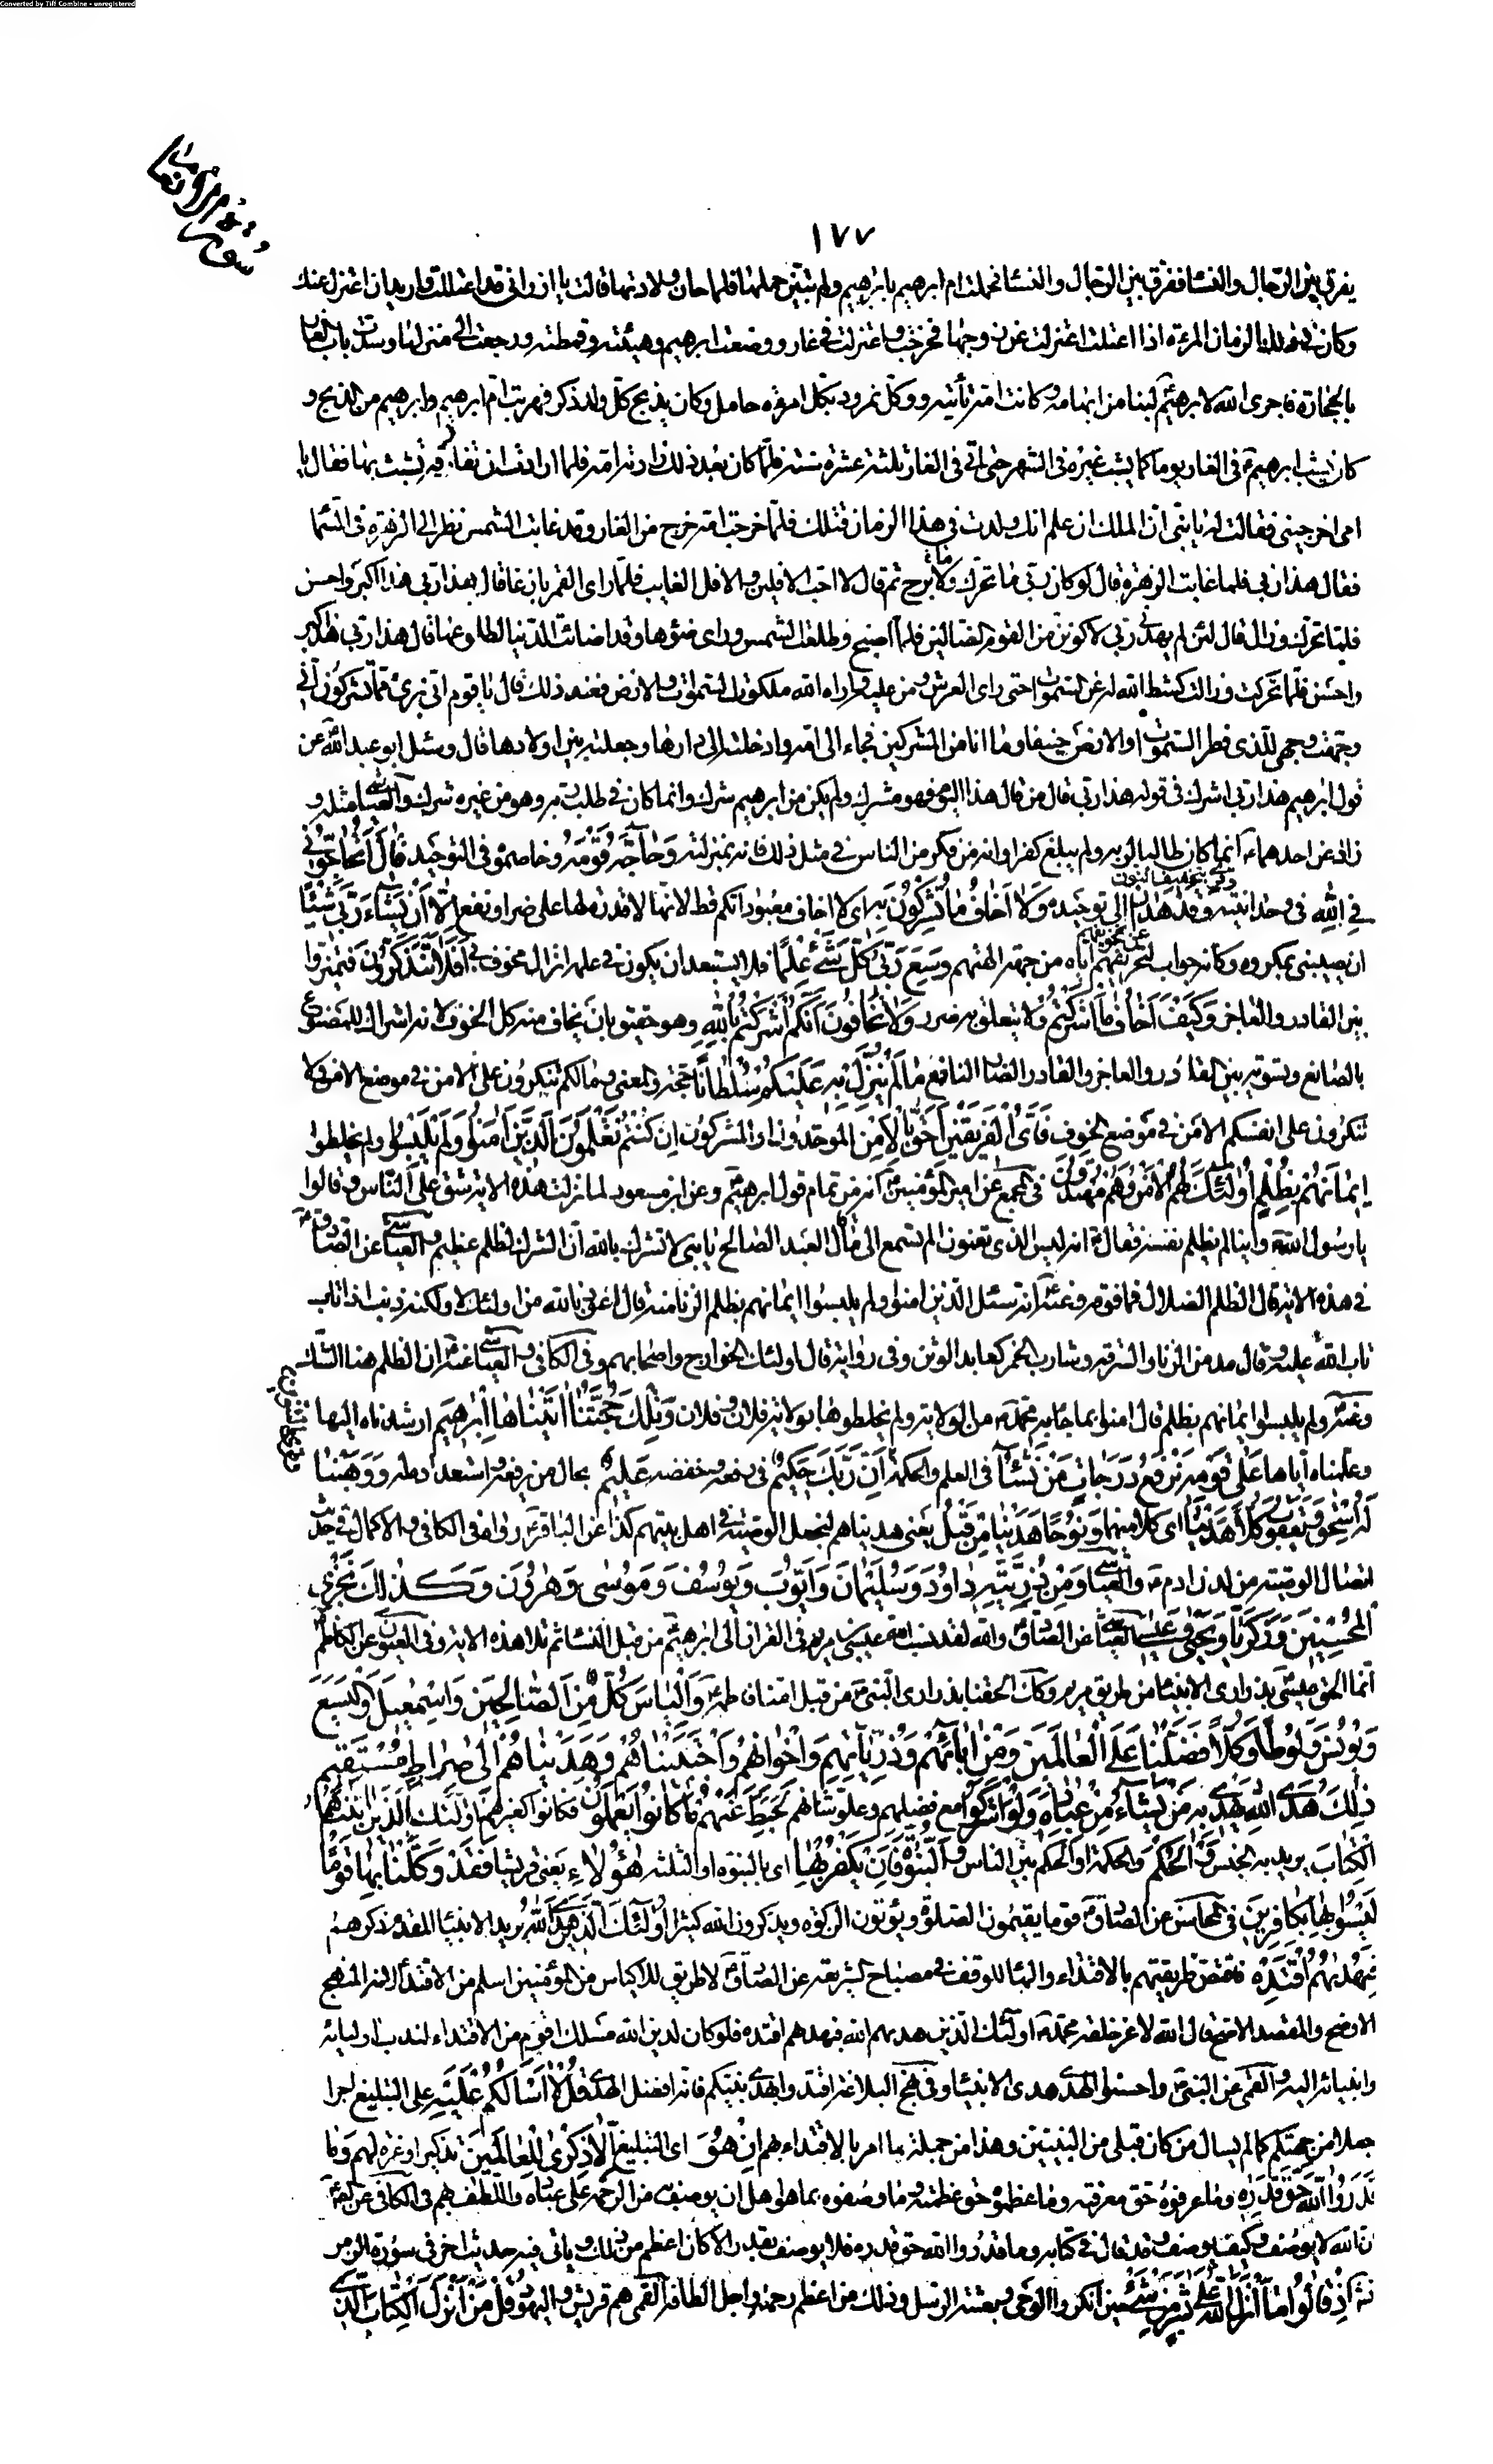 Converted by Tiff Combine - unregistered
سورة الانعام
١٧٧
يفرق بين الرجال والنساء ففرق بين الرجال والنساء فحملت ام ابرهيم بابرهيم ولم يتبين حملها فلما حان ولادتها قالت يا ازر اني قد اعتللت واريد ان اعتزل عنك
وكان في ذلك الزمان المرءة اذا اعتلت اعتزلت عن زوجها فخرجت واعتزلت في غار ووضعت ابرهيم وهيئته وقمطته ورجعت الى منزلها وسدت باب الغار
بالحجارة فاجرى الله لابرهيم لبنا من ابهامه وكانت امه تأتيه ووكل نمرود بكل امرءة حامل وكان يذبح كل ولد ذكر فهربت ام ابرهيم بابرهيم من الذبح و
كان يشب ابرهيم في الغار يوما كما يشب غيره في الشهر حتى اتى في الغار ثلثة عشرة سنة فلما كان بعد ذلك زارته امه فلما ارادت ان تفارقه تشبث بها فقال يا
امى اخرجيني فقالت له يا بني ان الملك ان علم انك ولدت في هذا الزمان قتلك فلما خرجت امه خرج من الغار وقد غابت الشمس نظر الى الزهرة في السماء
فقال هذا ربي فلما غابت الزهرة قال لو كان ربي ما تحرك ولا برح ثم قال لا احب الافلين والافل الغايب فلما راى القمر بازغا قال هذا ربي هذا اكبر واحسن
فلما تحرك وزال قال لئن لم يهدني ربي لاكونن من القوم الضالين فلما اصبح وطلعت الشمس وراى ضوءها وقد اضائت الدنيا لطلوعها قال هذا ربي هذا اكبر
واحسن فلما تحركت وزالت كشط الله له عن السموات حتى راى العرش ومن عليه واراه الله ملكوت السموات والارض فعند ذلك قال يا قوم اني برئ مما تشركون اني
وجهت وجهي للذي فطر السموات والارض حنيفا وما انا من المشركين فجاء الى امه وادخلته الى دارها وجعلته بين اولادها قال وسئل ابو عبد الله عن
قول ابرهيم هذا ربي اشرك في قوله هذا ربي قال من قال هذا اليوم فهو مشرك ولم يكن من ابرهيم شرك وانما كان في طلب ربه وهو من غيره شرك والعياشي مثله و
زاد عن احدهما انما كان طالبا لربه ولم يبلغ كفرا وانه من فكر من الناس في مثل ذلك فانه بمنزلته وَحَاجَّهُ قَوْمُهُ وخاصموه في التوحيد قَالَ أَتُحَاجُّونِّي
وقرئ بتخفيف النون
فِي اللَّهِ في وحدانيته وَقَدْ هَدَانِ الى توحيده وَلَا أَخَافُ مَا تُشْرِكُونَ بِهِ اى لا اخاف معبوداتكم قط لانها لا قدرة لها على ضر او نفع إِلَّا أَنْ يَشَاءَ رَبِّي شَيْئًا
ان يصيبني بمكروه وكانه جواب لتخويفهم اياه من جهة الهتهم وَسِعَ رَبِّي كُلَّ شَيْءٍ عِلْمًا فلا يستبعد ان يكون في علمه انزال مخوف بي أَفَلَا تَتَذَكَّرُونَ فتميزوا
بين القادر والعاجز وَكَيْفَ أَخَافُ مَا أَشْرَكْتُمْ ولا يتعلق به ضرر وَلَا تَخَافُونَ أَنَّكُمْ أَشْرَكْتُمْ بِاللَّهِ وهو حقيق بان يخاف منه كل الخوف لانه اشراك للمصنوع
بالصانع وتسوية بين القادر والعاجز والقادر الضار النافع مَا لَمْ يُنَزِّلْ بِهِ عَلَيْكُمْ سُلْطَانًا حجة والمعنى وما لكم تنكرون على الامن في موضع الامن ولا
تنكرون على انفسكم الامن في موضع الخوف فَأَيُّ الْفَرِيقَيْنِ أَحَقُّ بِالْأَمْنِ الموحدون او المشركون إِنْ كُنْتُمْ تَعْلَمُونَ الَّذِينَ آمَنُوا وَلَمْ يَلْبِسُوا ولم يخلطوا
إِيمَانَهُمْ بِظُلْمٍ أُولَئِكَ لَهُمُ الْأَمْنُ وَهُمْ مُهْتَدُونَ في المجمع عن امير المؤمنين انه من تمام قول ابرهيم وعن ابن مسعود لما نزلت هذه الاية شق على الناس وقالوا
يا رسول الله واينا لم يظلم نفسه فقال انه ليس الذي تعنون الم تسمع الى ما قال العبد الصالح يا بني لا تشرك بالله ان الشرك لظلم عظيم والعياشي عن الصادق
في هذه الاية قال الظلم الضلال فما فوقه وعنه انه سئل الذين امنوا ولم يلبسوا ايمانهم بظلم الزنا منه قال اعوذ بالله من اولئك لا ولكنه ذنب اذا تاب
تاب الله عليه وقال مدمن الزنا والسرقة وشارب الخمر كعابد الوثن وفي رواية قال اولئك الخوارج واصحابهم وفي الكافي والعياشي عنه ان الظلم هنا الشك
وعنه ولم يلبسوا ايمانهم بظلم قال امنوا بما جاء به محمد من الولاية ولم يخلطوها بولاية فلان وفلان وَتِلْكَ حُجَّتُنَا آتَيْنَاهَا إِبْرَاهِيمَ ارشدناه اليها
وقرئ بالتنوين
وعلمناه اياها عَلَى قَوْمِهِ نَرْفَعُ دَرَجَاتِ مَنْ نَشَاءُ في العلم والحكمة إِنَّ رَبَّكَ حَكِيمٌ في رفعه وخفضه عَلِيمٌ بحال من يرفعه واستعداده له وَوَهَبْنَا
لَهُ إِسْحَقَ وَيَعْقُوبَ كُلًّا هَدَيْنَا اى كلا منهما وَنُوحًا هَدَيْنَا مِنْ قَبْلُ يعني هديناهم لنجعل الوصية في اهل بيتهم كذا عن الباقر رواه في الكافي والاكمال في حديث
اتصال الوصية من لدن ادم والعياشي وَمِنْ ذُرِّيَّتِهِ دَاوُدَ وَسُلَيْمَانَ وَأَيُّوبَ وَيُوسُفَ وَمُوسَى وَهَرُونَ وَكَذَلِكَ نَجْزِي
الْمُحْسِنِينَ وَزَكَرِيَّا وَيَحْيَى وَعِيسَى العياشي عن الصادق والله لقد نسب الله عيسى بن مريم في القران الى ابرهيم من قبل النساء ثم تلا هذه الاية وفي العيون عن الكاظم
انما الحق عيسى بذراري الانبياء من طريق مريم وكذلك الحقنا بذراري النبي من قبل امنا فاطمة وَإِلْيَاسَ كُلٌّ مِنَ الصَّالِحِينَ وَإِسْمَعِيلَ وَالْيَسَعَ
وَيُونُسَ وَلُوطًا وَكُلًّا فَضَّلْنَا عَلَى الْعَالَمِينَ وَمِنْ آبَائِهِمْ وَذُرِّيَّاتِهِمْ وَإِخْوَانِهِمْ وَاجْتَبَيْنَاهُمْ وَهَدَيْنَاهُمْ إِلَى صِرَاطٍ مُسْتَقِيمٍ
ذَلِكَ هُدَى اللَّهِ يَهْدِي بِهِ مَنْ يَشَاءُ مِنْ عِبَادِهِ وَلَوْ أَشْرَكُوا مع فضلهم وعلو شانهم لَحَبِطَ عَنْهُمْ مَا كَانُوا يَعْمَلُونَ فكانوا كغيرهم أُولَئِكَ الَّذِينَ آتَيْنَاهُمُ
الْكِتَابَ يريد به الجنس وَالْحُكْمَ والحكمة او الحكم بين الناس وَالنُّبُوَّةَ فَإِنْ يَكْفُرْ بِهَا اى بالنبوة او الثلثة هَؤُلَاءِ يعني قريشا فَقَدْ وَكَّلْنَا بِهَا قَوْمًا
لَيْسُوا بِهَا بِكَافِرِينَ في المحاسن عن الصادق قوما يقيمون الصلوة ويؤتون الزكوة ويذكرون الله كثيرا أُولَئِكَ الَّذِينَ هَدَى اللَّهُ يريد الانبياء المقدم ذكرهم
فَبِهُدَيهُمُ اقْتَدِهْ فاختص طريقتهم بالاقتداء والهاء للوقف في مصباح الشريعة عن الصادق لا طريق للاكياس من المؤمنين اسلم من الاقتداء لانه المنهج
الاوضح والمقصد الاصح قال الله لاعز خلقه محمد اولئك الذين هديهم الله فبهديهم اقتده فلو كان لدين الله مسلك اقوم من الاقتداء لندب اوليائه
وانبيائه اليه والقمي عن النبي واحسن الهدى هدى الانبياء وفي نهج البلاغة اقتدوا بهدى نبيكم فانه افضل الهدى قُلْ لَا أَسْأَلُكُمْ عَلَيْهِ على التبليغ اجرا
جعلا من جهتكم كما لم يسال من كان قبلي من النبيين وهذا من جملة ما امر بالاقتداء بهم إِنْ هُوَ اى التبليغ إِلَّا ذِكْرَى لِلْعَالَمِينَ تذكيرا وعظة لهم وَمَا
قَدَرُوا اللَّهَ حَقَّ قَدْرِهِ وما عرفوه حق معرفته وما عظموه حق عظمته وما وصفوه بما هو اهل ان يوصف من الرحمة على عباده واللطف بهم في الكافي عن
ان الله لا يوصف وكيف يوصف وقد قال في كتابه وما قدروا الله حق قدره فلا يوصف بقدر الا كان اعظم من ذلك وياتي فيه حديث اخر في سورة الزمر
إِذْ قَالُوا مَا أَنْزَلَ اللَّهُ عَلَى بَشَرٍ مِنْ شَيْءٍ حين انكروا الوحي وبعثة الرسل وذلك من اعظم رحمته واجل الطافه القمي هم قريش واليهود قُلْ مَنْ أَنْزَلَ الْكِتَابَ الَّذِي